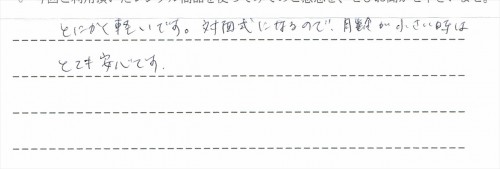 とにかく軽いです。対面式になるので、月齢が小さい時は
とても安心です。